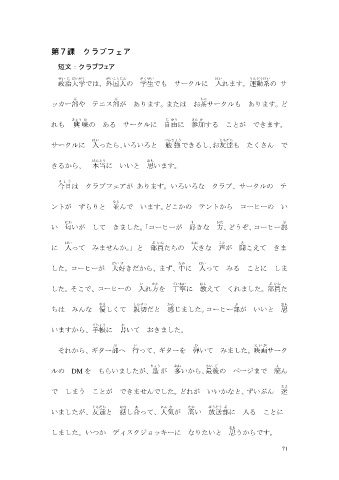 第７課　クラブフェア
短文：クラブフェア
政治大学では、外国人の　学生でも　サークルに　入れます。運動系の　サ
ッカー部や　テニス部が　あります。または　お茶サークルも　あります。ど
れも　興味の　ある　サークルに　自由に　参加する　ことが　できます。
サークルに　入ったら、いろいろと　勉強できるし、お友達も　たくさん　で
きるから、　本当に　いいと　思います。
今日は　クラブフェアが あります。いろいろな　クラブ、サークルの　テ
ントが　ずらりと　並んで　います。どこかの　テントから　コーヒーの　い
い　匂いが　して　きました。「コーヒーが　好きな　方、どうぞ、コーヒー部
に　入って　みませんか。」と　部員たちの　大きな　声が　聞こえて　きま
した。コーヒーが　大好きだから、まず、中に　入って　みる　ことに　しま
した。そこで、コーヒーの　入れ方を　丁寧に　教えて　くれました。部員た
ちは　みんな　優しくて　親切だと　感じました。コーヒー部が　いいと　思
いますから、手帳に　書いて　おきました。
それから、ギター部へ　行って、ギターを　弾いて　みました。映画サーク
ルの　DM を　もらいましたが、量が　多いから、最後の　ページまで　読ん
で　しまう　ことが　できませんでした。どれが　いいかなと、ずいぶん　迷
いましたが、友達と　話し合って、人気が　高い　放送部に　入る　ことに
しました。いつか　ディスクジョッキーに　なりたいと　思うからです。
71